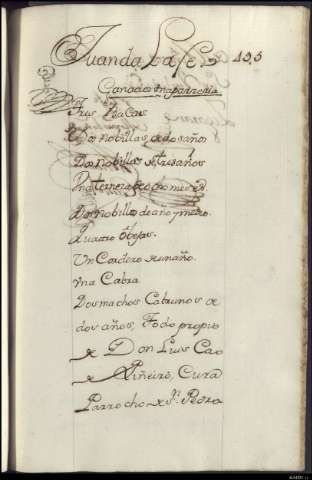 Juan da Laxe 495
Ganado en aparzería
Tres Bacas
Dos nobillas de dos años
Dos nobillas de tres años
Una ternera de ocho meses
Dos nobillos de año y medio
Quatro obejas.
Un Cordero de un año.
Una Cabra
Dos machos Cabrunos de
dos años, Todo propio
de Don Luis Cao
de Piñeiro, Cura
Parrocho de Sn. Pedro